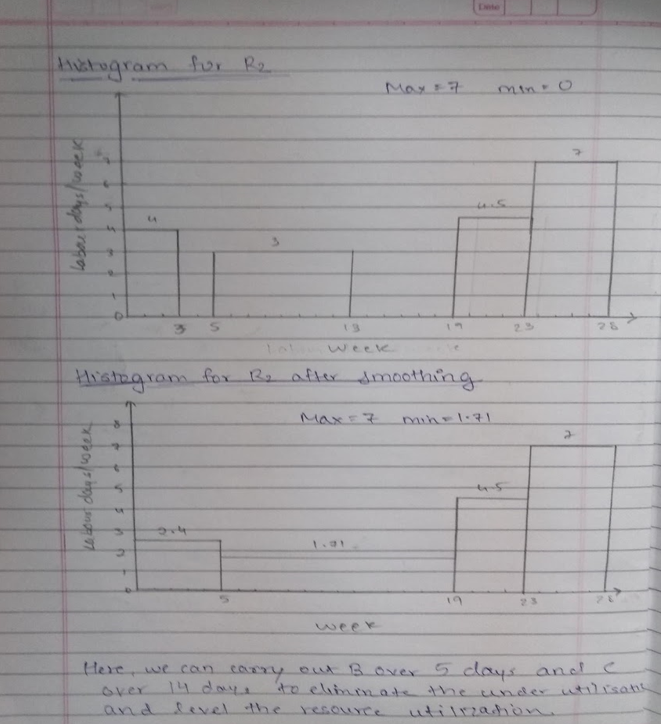 Date
Histogram for R2
Max = 7 min = 0
Labour days/week
7
4.5
4
3
0
3 5 13 19 23 28
week
Histogram for R2 after smoothing
Max = 7 min = 1.71
Labour days/week
8
7
7
6
5
4.5
4
3
2.4
2
1.71
1
0
5 19 23 28
week
Here, we can carry out B over 5 days and C
over 14 days to eliminate the under utilisation
and level the resource utilization.